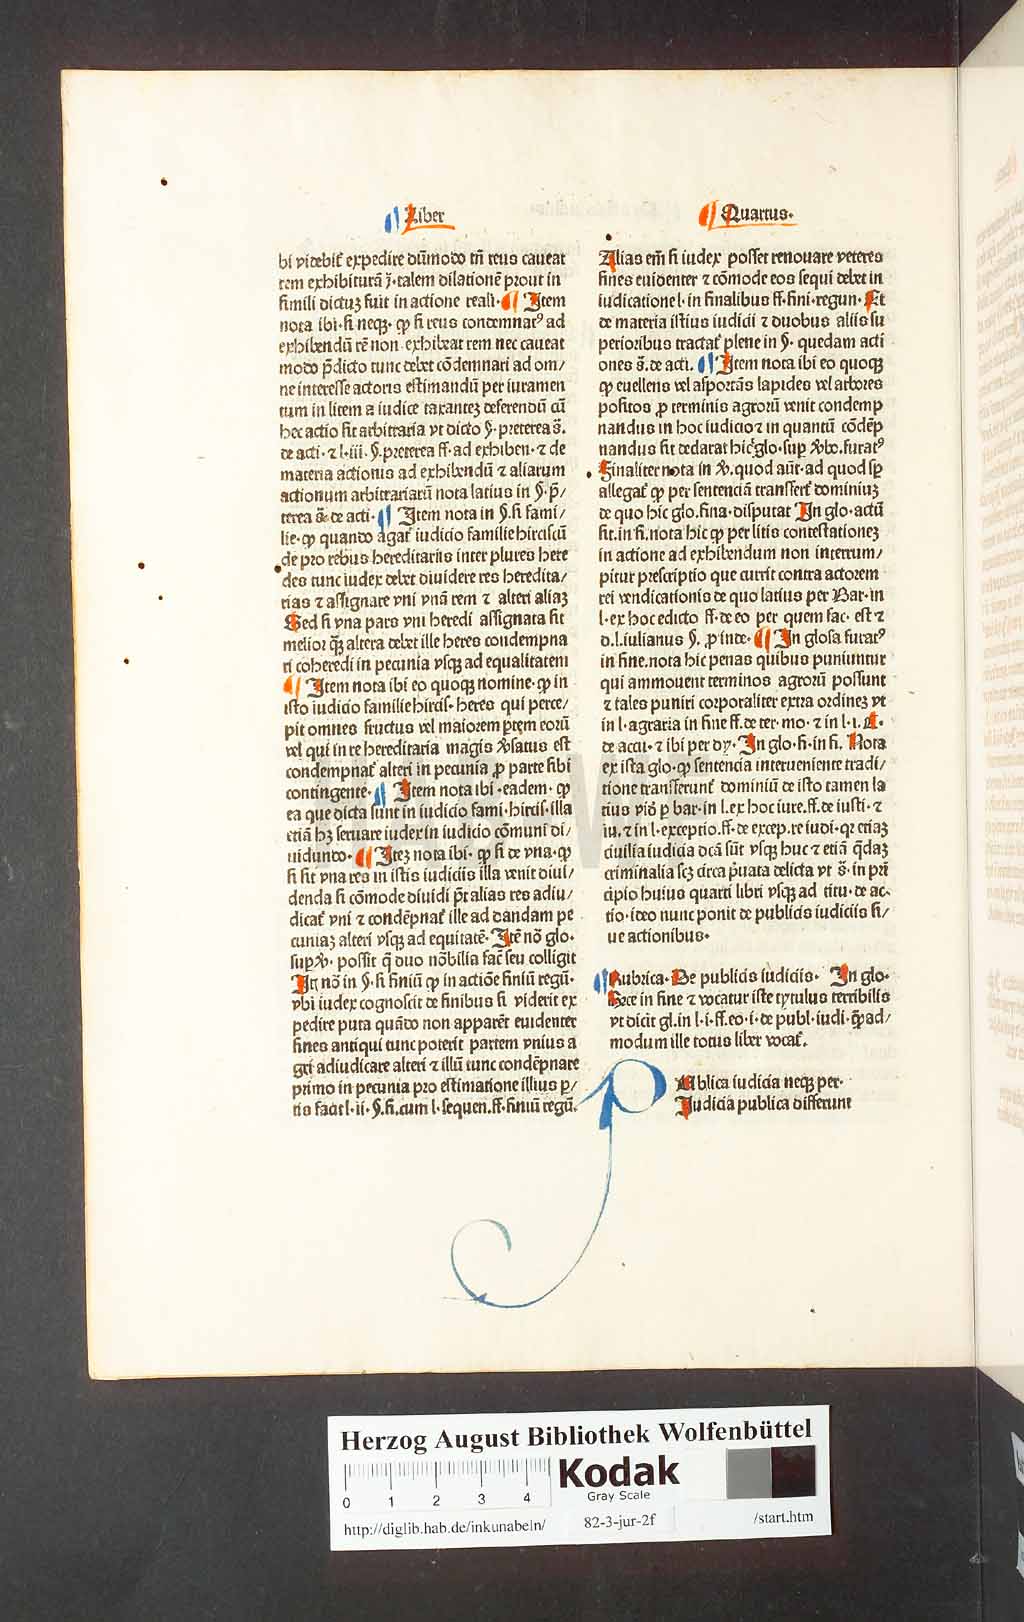 Liber
Quartus.
bi videbit᷒ expedire dūmodo tn̄ reus caueat
rem exhibiturā ꝫ. talem dilationē prout in
simili dictuꝫ fuit in actione reali. ¶ Item
nota ibi. si neqꝫ. ꝙ si reus condemnatꝰ ad
exhibendū rē non exhibeat rem nec caueat
modo p̄dicto tunc debet cōdemnari ad om/
ne interesse actoris estimandū per iuramen
tum in litem a iudice taxanteꝫ deferendū cū
hec actio sit arbitraria vt dicto §. preterea s̄.
de acti. ⁊ l. iii. §. preterea ff. ad exhiben. ⁊ de
materia actionis ad exhibendū ⁊ aliarum
actionum arbitrariarū nota latius in §. p̄/
terea s̄. de acti. ¶ Item nota in §. si fami/
lie. ꝙ quando agat᷒ iudicio familie hirciscū
de pro rebus hereditariis inter plures here
des tunc iudex debet diuidere res heredita/
rias ⁊ assignare vni vnā rem ⁊ alteri aliaꝫ
Sed si vna pars vni heredi assignata sit
melior qꝫ altera debet ille heres condempna
ri coheredi in pecunia vsqꝫ ad equalitatem
¶ Item nota ibi eo quoqꝫ nomine. ꝙ in
isto iudicio familie hircis. heres qui perce/
pit omnes fructus vel maiorem ꝑteꝫ eorū
vel qui in re hereditaria magis v̄satus est
condempnat᷒ alteri in pecunia ꝓ parte sibi
contingente. ¶ Item nota ibi. eadem. ꝙ
ea que dicta sunt in iudicio fami. hircis. illa
etiā hꝫ seruare iudex in iudicio cōmuni di/
uidundo. ¶ Iteꝫ nota ibi. ꝙ si de vna. ꝙ
si sit vna res in istis iudiciis illa venit diui/
denda si cōmode diuidi p̄t alias res adiu/
dicat᷒ vni ⁊ condēpnat᷒ ille ad dandam pe
cuniaꝫ alteri vsqꝫ ad equitatē. Itē nō glo.
suꝑ v̄. possit q̄ duo nōbilia fac̄ seu colligit
Itꝫ nō in §. si finiū ꝙ in actiōe finiū regū.
vbi iudex cognoscit de finibus si viderit ex
pedire puta quādo non apparēt euidenter
fines antiqui tunc poterit partem vnius a
gri adiudicare alteri ⁊ illū tunc condēpnare
primo in pecunia pro estimatione illius p/
tis facit l. ii. §. si. cum l. sequen. ff. finiū regū.
Alias em̄ si iudex posset renouare veteres
fines euidenter ⁊ cōmode eos sequi debet in
iudicatione l. in finalibus ff. fini. regun. Et
de materia istius iudicii ⁊ duobus aliis su
perioribus tractat᷒ plene in §. quedam acti
ones s̄. de acti. ¶ Item nota ibi eo quoqꝫ
ꝙ euellens vel asportās lapides vel arbores
positos ꝓ terminis agrorū venit condemp
nandus in hoc iudicio ⁊ in quantū cōdēp
nandus sit declarat hic glo. suꝑ v̄bo. furatꝰ
Finaliter nota in v̄. quod aūt. ad quod sp̄
allegat᷒ ꝙ per sententiā transfert᷒ dominiuꝫ
de quo hic glo. fina. disputat In glo. actū
sit. in fi. nota hic ꝙ per litis contestationeꝫ
in actione ad exhibendum non interrum/
pitur prescriptio que currit contra actorem
rei vendicationis de quo latius per Bar. in
l. ex hoc edicto ff. de eo per quem fac. est ⁊
d. l. iulianus §. ꝓinde. ¶ In glosa furatꝰ
in fine. nota hic penas quibus puniuntur
qui ammouent terminos agrorū possunt
⁊ tales puniri corporaliter extra ordineꝫ vt
in l. agraria in fine ff. de ter. mo. ⁊ in l. i. C.
de accu. ⁊ ibi per dy. In glo. si. in fi. Nota
ex ista glo. ꝙ sententia interueniente tradi/
tione transferunt᷒ dominiū de isto tamen la
tius vid̄ ꝑ bar. in l. ex hoc iure. ff. de iusti. ⁊
iu. ⁊ in l. exceptio. ff. de excep. re iudi. qꝛ etiaꝫ
ciuilia iudicia dcā sūt vsqꝫ huc ⁊ etiā q̄daꝫ
criminalia scꝫ circa p̄uata delicta vt s̄. in prī
cipio huius quarti libri vsqꝫ ad titu. de ac
tio. ideo nunc ponit de publicis iudiciis si/
ue actionibus.
¶ Rubrica. De publicis iudiciis. In glo.
Hec in fine ⁊ vocatur iste tytulus terribilis
vt dicit gl. in l. i. ff. eo. i. de publ. iudi. q̄ ad/
modum ille totus liber vocat᷒.
Publica iudicia neqꝫ per.
Iudicia publica differunt
HAB-WF
Herzog August Bibliothek Wolfenbüttel
0 1 2 3 4
Kodak
Gray Scale
http://diglib.hab.de/inkunabeln/ 82-3-jur-2f /start.htm